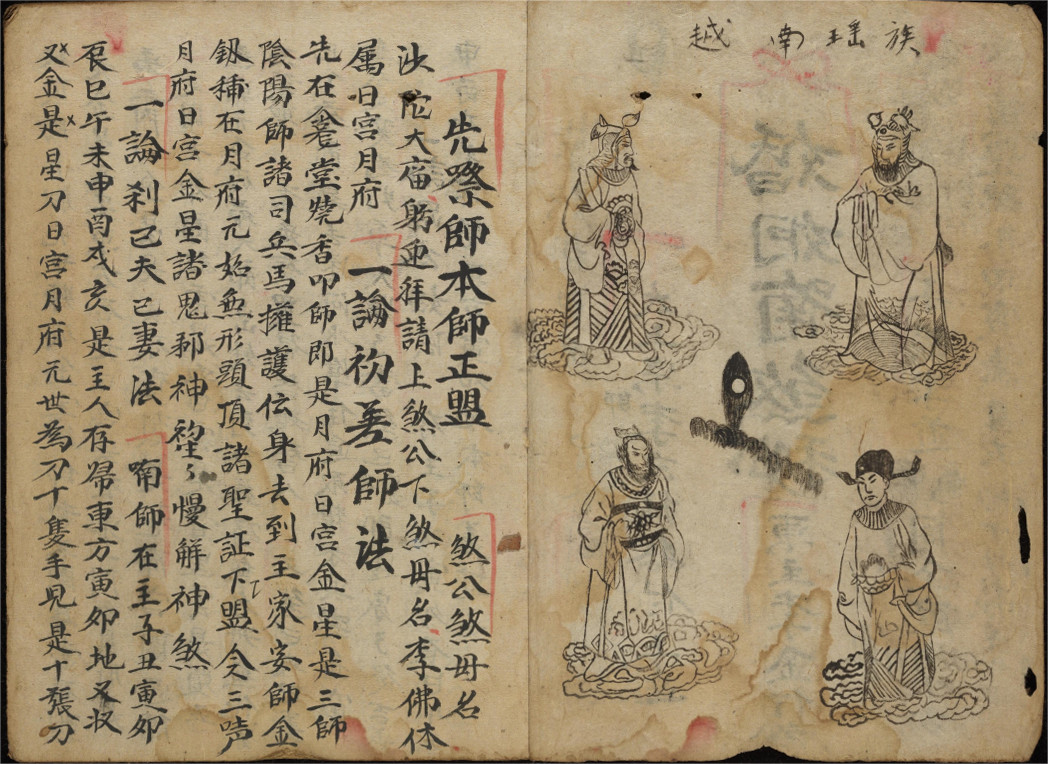 越南瑶族
先祭師本師正盟 煞公煞毋名
沙陀大庙躬迎拜請上煞公下煞毋名李佛休
属日宮月府 一論初差師法
先在堂燒香叩師即是月府日宮金星是三師
陰陽師諸司兵馬擁護伝身去到主家安師金
釼插在月府元始無形頭頂諸聖証下盟令三声
月府日宮金星諸鬼邪神慢解神煞
一論刹己夫己妻法 喃師在主子丑寅卯
辰巳午未申酉戌亥是主人存帰東方寅卯地又收
又金是星刀日宮月府元世為刀十隻手児是十張刀